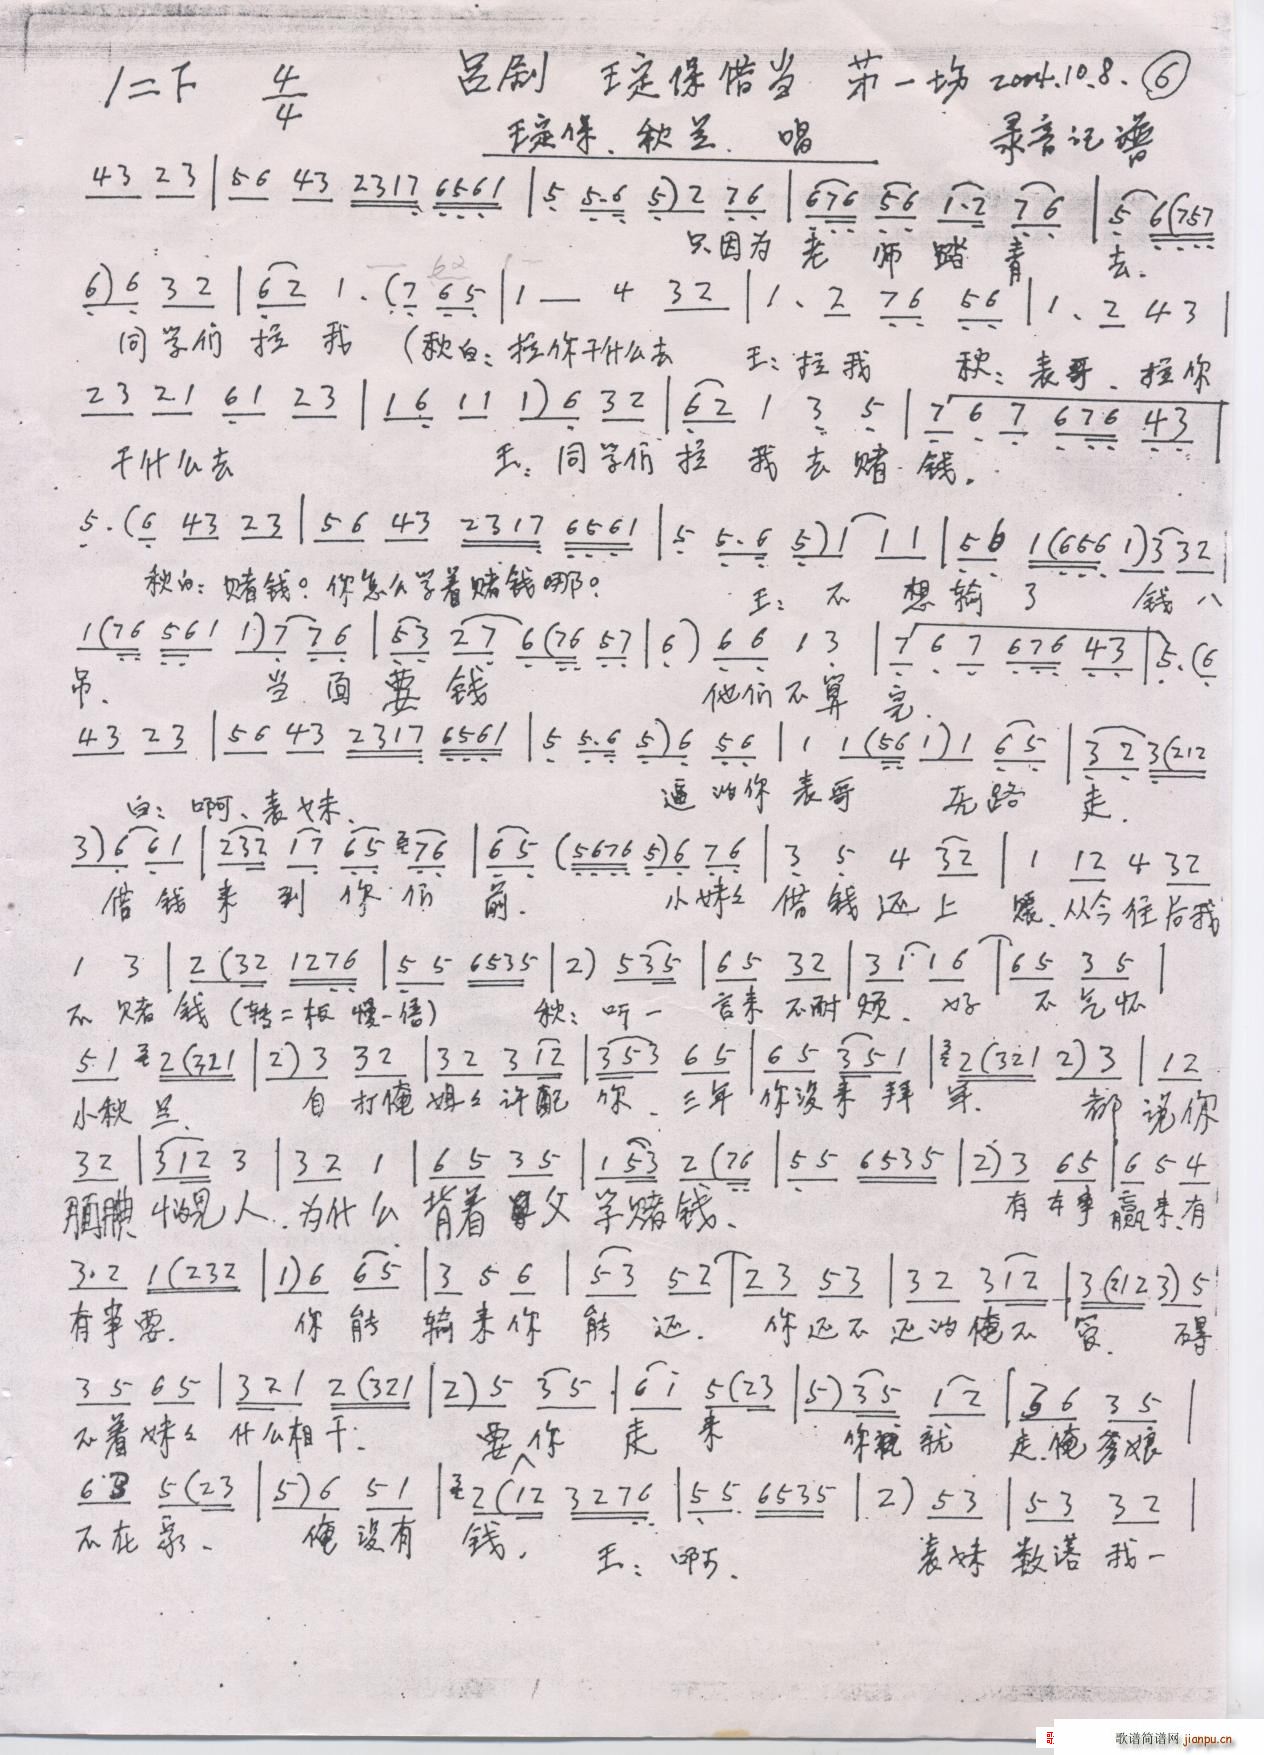 1=F 4/4 吕剧 王定保借当 第一场 2004.10.8. ⑥
王定保、秋兰. 唱 录音记谱
43 23 | 56 43 2317 6561 | 5 5.6 5) 2 76 | 676 56 1.2 76 | 5 6(757
只因为 老 师 踏 青 去.
6) 6 32 | 62 1. (7 65 | 1 — 4 32 | 1. 2 76 56 | 1. 2 43 |
同学们 拉 我 (秋白: 拉你干什么去 王: 拉我 秋: 表哥、拉你
23 21 61 23 | 16 11 1) 6 32 | 62 1 3 5 | 7 6 7 676 43 |
干什么去 王: 同学们 拉 我 去 赌 钱.
5. (6 43 23 | 56 43 2317 6561 | 5 5.6 5) 1 11 | 56 1(656 1) 3 32 |
秋白: 赌钱? 你怎么学着赌钱哪? 王: 不 想 输 了 钱 八
1(76 561 1) 7 76 | 53 27 6(76 57 | 6) 66 13 | 7 6 7 676 43 | 5. (6
吊. 当 面 要 钱 他们不算 完.
43 23 | 56 43 2317 6561 | 5 5.6 5) 6 56 | 1 1(56 1) 1 65 | 32 3(212
白: 啊、表妹. 逼的你 表哥 无路 走.
3) 6 61 | 232 17 65 76 | 65 (5676 5) 6 76 | 3 5 4 32 | 1 12 4 32
借 钱 来 到 你 们 前. 小妹々 借 钱 还 上 赌.从今往后我
1 3 | 2(32 1276 | 55 6535 | 2) 535 | 65 32 | 31 16 | 65 35 |
不 赌 钱 (转二板 慢一倍) 秋: 听一 言来 不耐 烦. 好 不 气坏
51 2(321 | 2) 3 32 | 32 312 | 353 65 | 65 351 | 2(321 2) 3 | 12
小秋 兰. 自 打俺 姐々 许配 你. 三年 你没来 拜 年. 都 说你
32 | 312 3 | 32 1 | 65 35 | 153 2(76 | 55 6535 | 2) 3 65 | 65 4
腼腆 怕见 人. 为什么 背着 父 学赌钱. 有 本事 赢来.有
3.2 1(232 | 1) 6 65 | 3 5 6 | 53 52 | 23 53 | 32 312 | 3(212 3) 5
有事要. 你 能 输来你 能 还. 你还不 还的俺不 管. 碍
35 65 | 321 2(321 | 2) 5 35 | 61 5(23 | 5) 35 12 | 36 35 |
不着 妹々 什么相干. 要你 走 来 你就 走.俺 爹娘
63 5(23 | 5) 6 51 | 2(12 3276 | 55 6535 | 2) 53 | 53 32 |
不在 家. 俺 没有 钱. 王: 啊. 表妹 数落 我一
歌谱简谱网 jianpu.cn